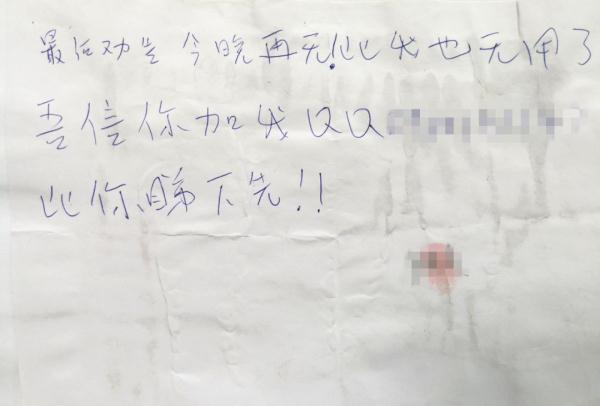 最后劝告 今晚再无!比我也无用了
吾信你加我QQ
比你睇下先!!